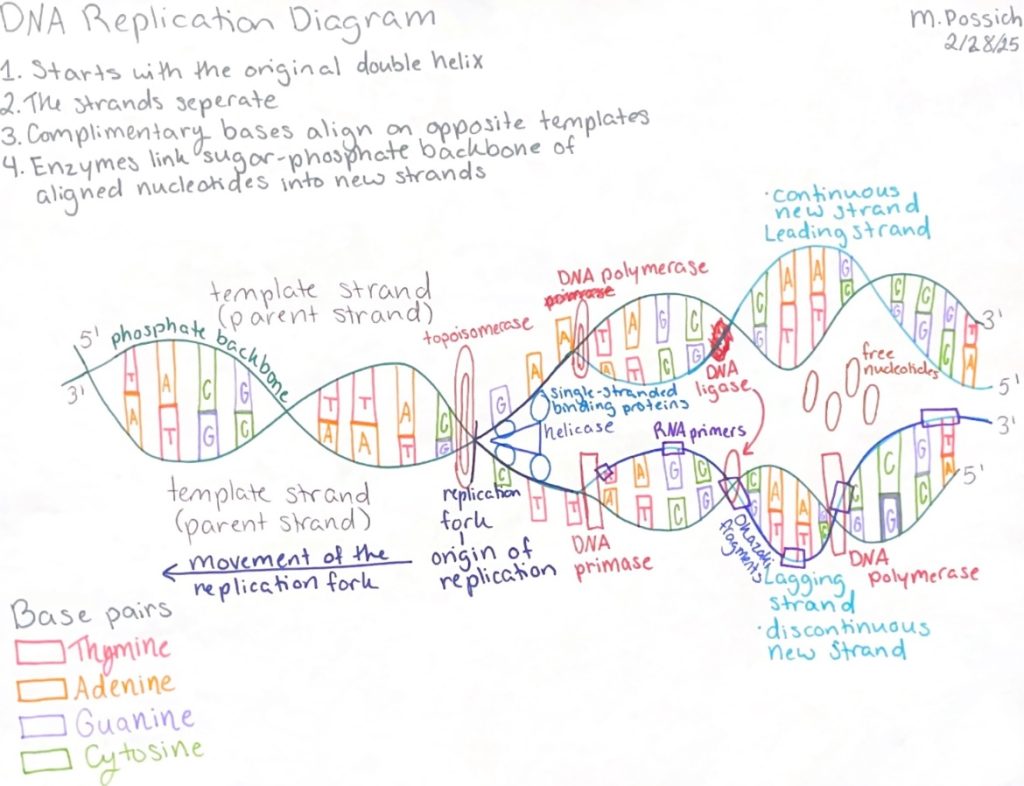 DNA Replication Diagram
M. Possich
2/28/25
1. Starts with the original double helix
2. The strands seperate
3. Complimentary bases align on opposite templates
4. Enzymes link sugar-phosphate backbone of
aligned nucleotides into new strands
· continuous
new strand
Leading strand
DNA polymerase
template strand
(parent strand)
topoisomerase
5'
phosphate backbone
3'
T A C G
A T G C
T T A C
A A T G
G A A T A G C
A T C G
C A A G
G T T C
C C G T
G G C A
3'
5'
DNA
ligase
free
nucleotides
single-stranded
binding proteins
helicase
RNA primers
3'
5'
C T T
A A G C
T T C G
C A A G
G T T C
G C G T
G C A
template strand
(parent strand)
replication
fork
origin of
replication
movement of the
replication fork
DNA
primase
Okazaki
fragments
Lagging
strand
· discontinuous
new strand
DNA
polymerase
Base pairs
Thymine
Adenine
Guanine
Cytosine